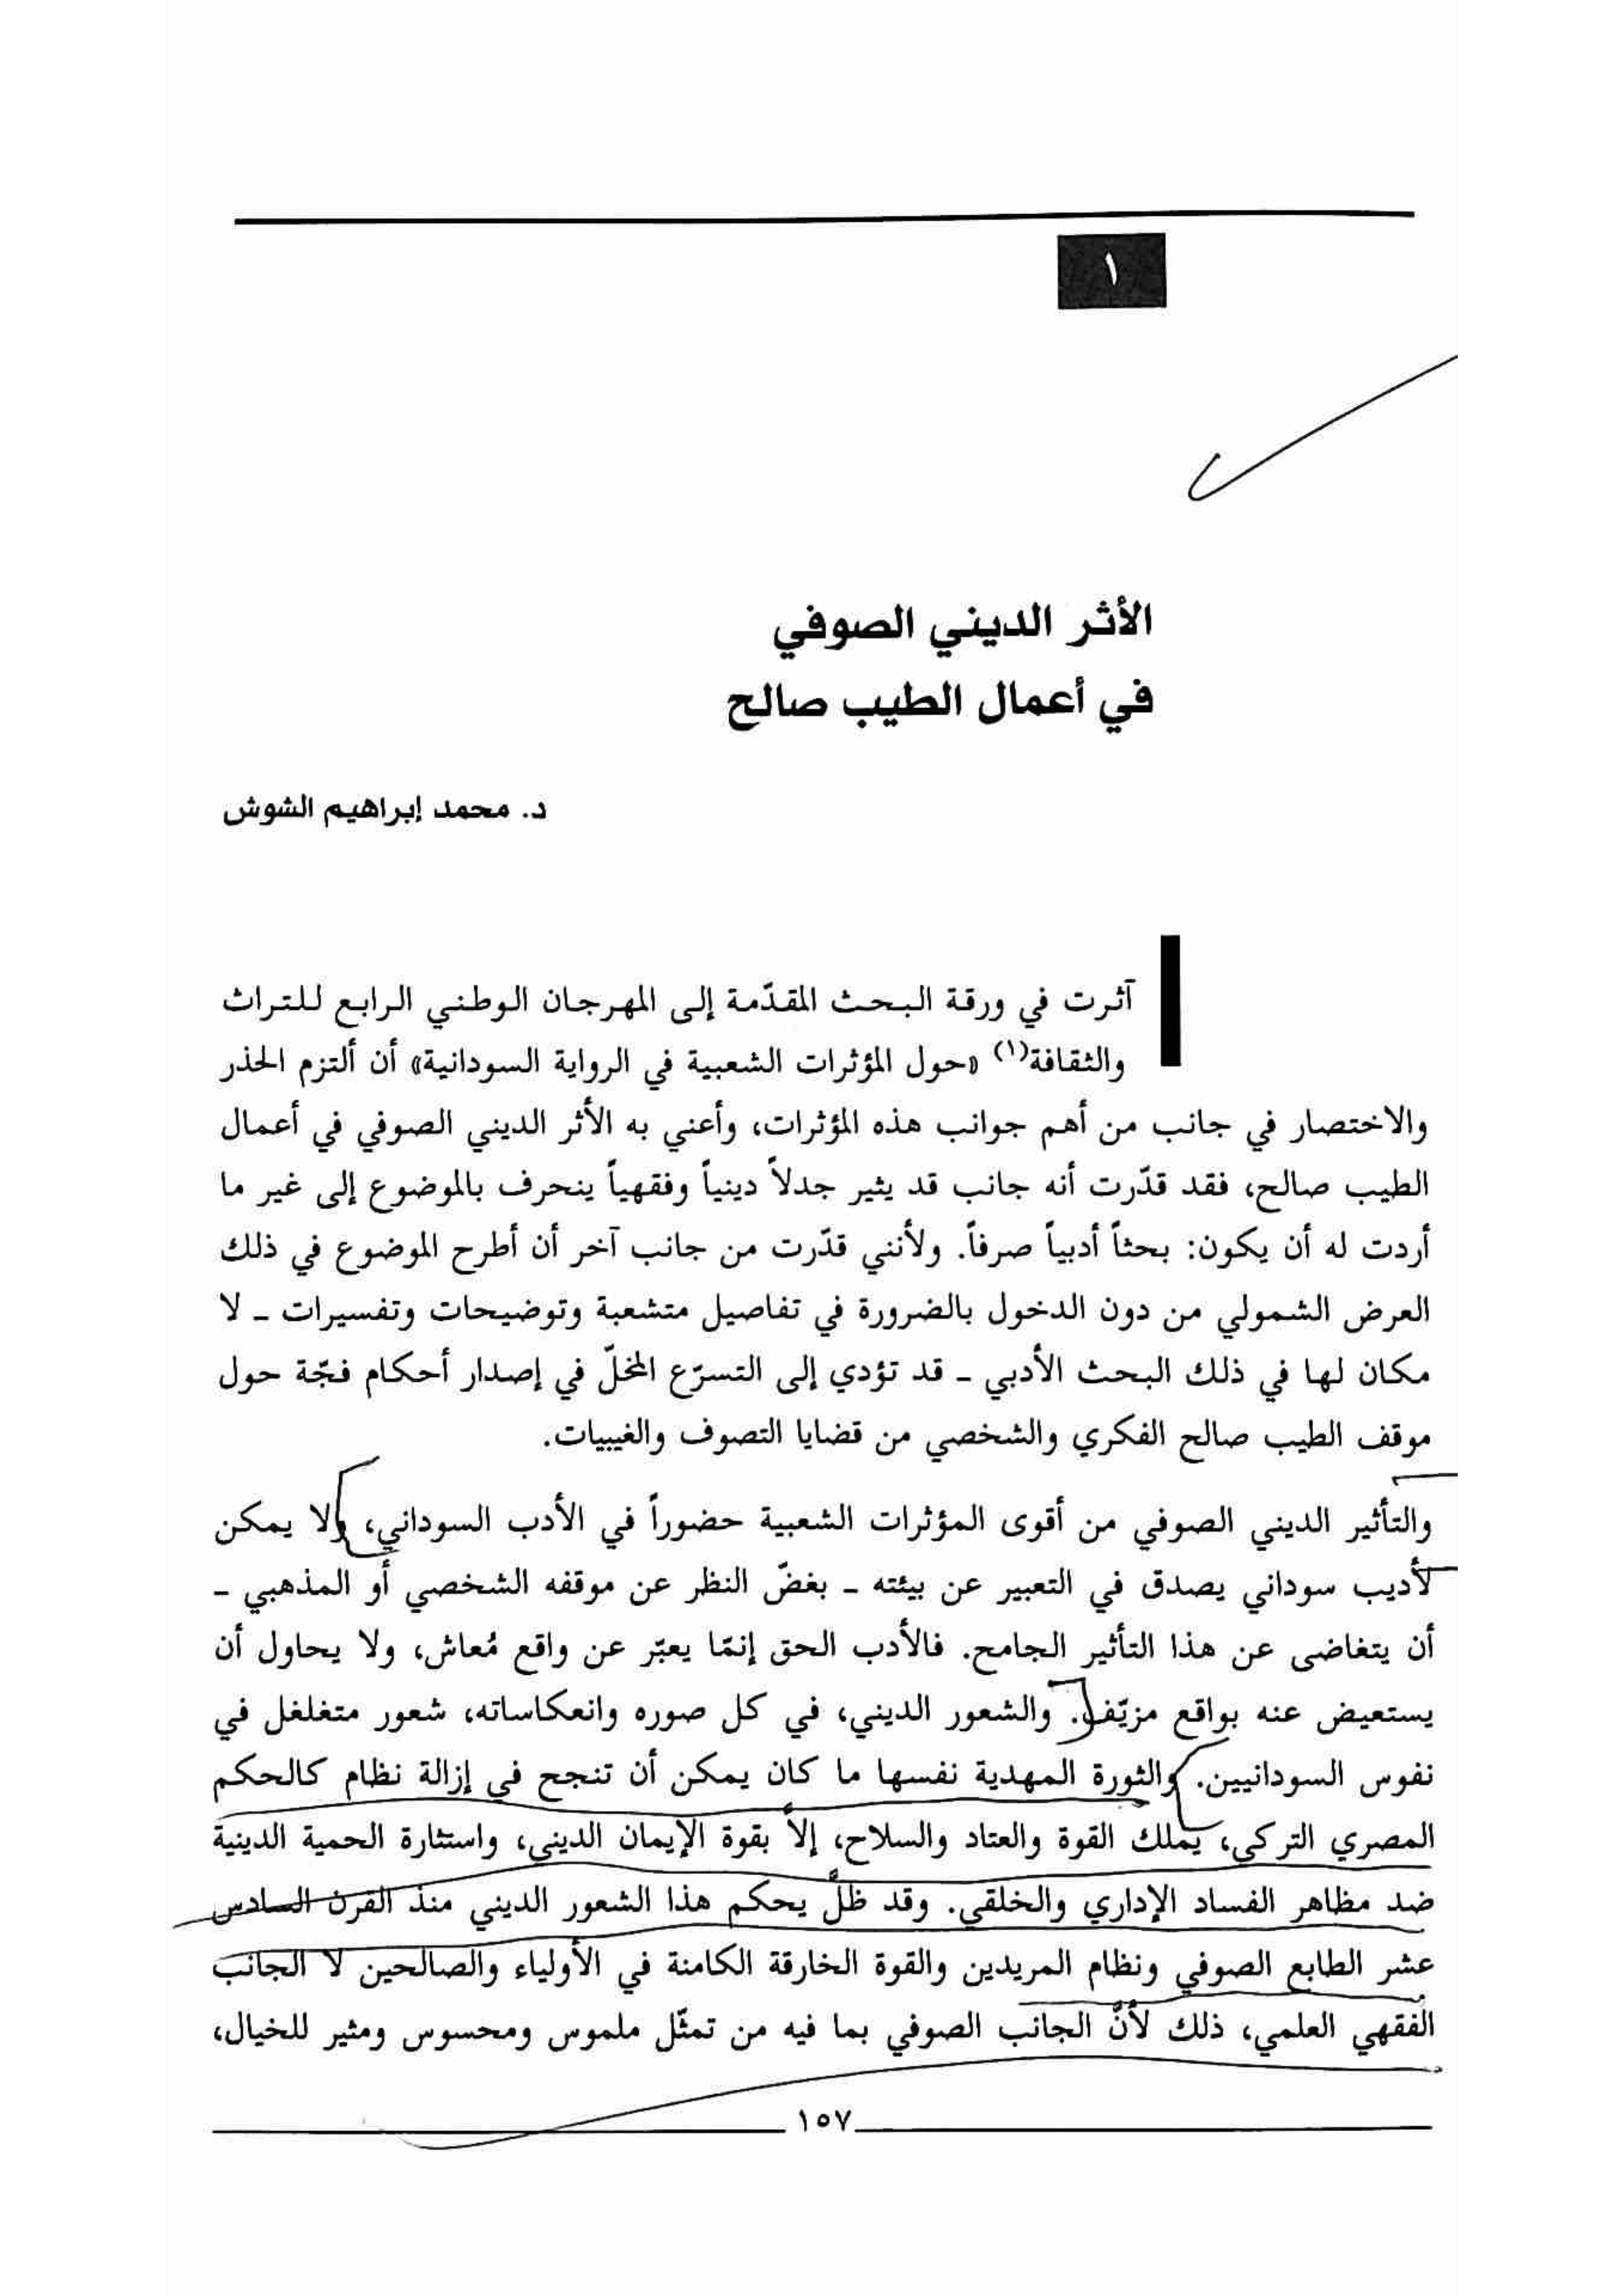 ١
الأثر الديني الصوفي
في أعمال الطيب صالح
د. محمد إبراهيم الشوش
آثرت في ورقة البحث المقدّمة إلى المهرجان الوطني الرابع للتراث
والثقافة(١) «حول المؤثرات الشعبية في الرواية السودانية» أن ألتزم الحذر
والاختصار في جانب من أهم جوانب هذه المؤثرات، وأعني به الأثر الديني الصوفي في أعمال
الطيب صالح، فقد قدّرت أنه جانب قد يثير جدلاً دينياً وفقهياً ينحرف بالموضوع إلى غير ما
أردت له أن يكون: بحثاً أدبياً صرفاً. ولأنني قدّرت من جانب آخر أن أطرح الموضوع في ذلك
العرض الشمولي من دون الدخول بالضرورة في تفاصيل متشعبة وتوضيحات وتفسيرات - لا
مكان لها في ذلك البحث الأدبي - قد تؤدي إلى التسرّع المخلّ في إصدار أحكام فجّة حول
موقف الطيب صالح الفكري والشخصي من قضايا التصوف والغيبيات.
والتأثير الديني الصوفي من أقوى المؤثرات الشعبية حضوراً في الأدب السوداني، ولا يمكن
لأديب سوداني يصدق في التعبير عن بيئته - بغضّ النظر عن موقفه الشخصي أو المذهبي -
أن يتغاضى عن هذا التأثير الجامح. فالأدب الحق إنمّا يعبّر عن واقع مُعاش، ولا يحاول أن
يستعيض عنه بواقع مزيّف. والشعور الديني، في كل صوره وانعكاساته، شعور متغلغل في
نفوس السودانيين. والثورة المهدية نفسها ما كان يمكن أن تنجح في إزالة نظام كالحكم
المصري التركي، يملك القوة والعتاد والسلاح، إلاّ بقوة الإيمان الديني، واستثارة الحمية الدينية
ضد مظاهر الفساد الإداري والخلقي. وقد ظلّ يحكم هذا الشعور الديني منذ القرن السادس
عشر الطابع الصوفي ونظام المريدين والقوة الخارقة الكامنة في الأولياء والصالحين لا الجانب
الفقهي العلمي، ذلك لأنّ الجانب الصوفي بما فيه من تمثّل ملموس ومحسوس ومثير للخيال،
١٥٧